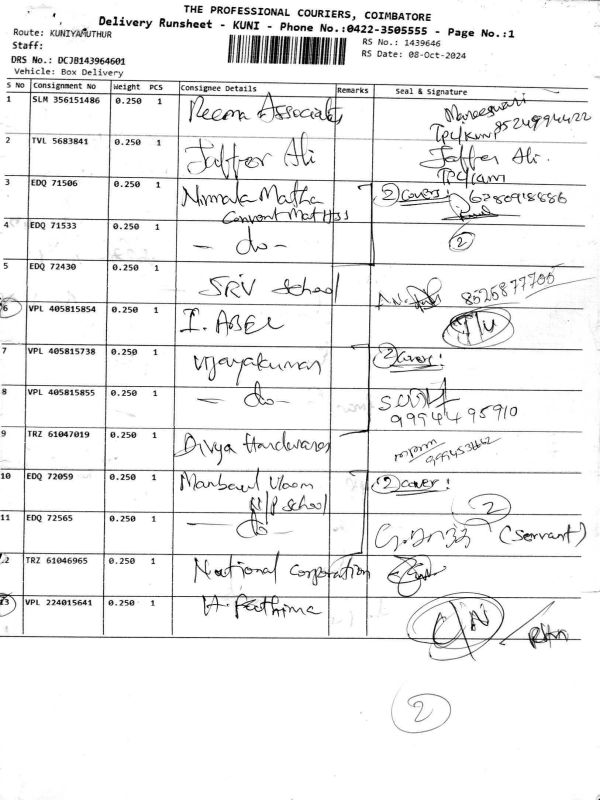 THE PROFESSIONAL COURIERS, COIMBATORE
Delivery Runsheet - KUNI - Phone No.:0422-3505555 - Page No.:1
Route: KUNIYAMUTHUR
RS No.: 1439646
Staff:
RS Date: 08-Oct-2024
DRS No.: DCJB143964601
Vehicle: Box Delivery
S No Consignment No Weight PCS Consignee Details Remarks Seal & Signature
1 SLM 356151486 0.250 1 Reema Associates
8524994422
2 TVL 5683841 0.250 1 Jaffer Ali Jaffer Ali.
3 EDQ 71506 0.250 1 Nirmala Matha 2 covers! 6280918886
Convent Mat Hss
4 EDQ 71533 0.250 1 - do - 2
5 EDQ 72430 0.250 1 SRV School 8525877705
6 VPL 405815854 0.250 1 I. ABEL
7 VPL 405815738 0.250 1 Vijayakumar 2 cover!
8 VPL 405815855 0.250 1 - do -
9994495910
9 TRZ 61047019 0.250 1 Divya Hardwares
10 EDQ 72059 0.250 1 2 cover!
N/P School
2
11 EDQ 72565 0.250 1 - do - (Servant)
12 TRZ 61046965 0.250 1 National Corporation
13 VPL 224015641 0.250 1 H. Fathima
2